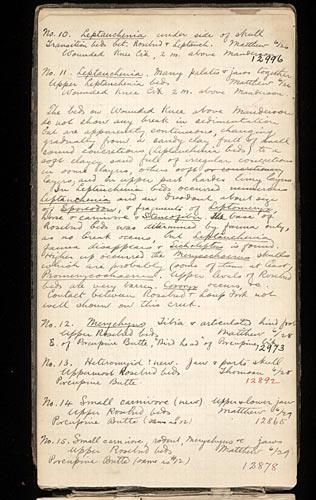 No. 10. Leptauchenia under side of skull
Transition beds bet. Rosebud & Leptauch. Matthew 6/20
Wounded Knee Ck, 2 m. above Manderson
12996
No. 11. Leptauchenia. Many palates & jaws together
Upper Leptauchenia beds Matthew 6/20
Wounded Knee Ck 2 m. above Manderson.
The beds on Wounded Knee above Manderson
do not show any break in sedimentation
but are apparently continuous, changing
gradually from a sandy clay, full of small
round concretions (Leptauchenia beds) to a
soft clayey sand full of irregular concretions
in some layers, others soft or concretionary
layers, and in upper part harder limy layers
In Leptauchenia beds occurred numerous
Leptauchenia and an Oreodont about size
of Eporeodon, & fragments of Leptomeryx
bone & carnivore & Steneofiber. The base of
Rosebud beds was determined by fauna only,
as no break occurs, but Leptauchenia
fauna disappears & is found.
Higher up occurred the Merycochoerus skulls
which are probably
Promerycochoerus. Upper levels of Rosebud
beds are very barren. occurs, &c.
Contact between Rosebud & Loup Fork not
well shown on this creek.
No. 12. Merychyus Tibia & articulated hind foot
Upper Rosebud beds Matthew 6/28
E. of Porcupine Butte, "Bird head" of Porcupine
No. 13. Heteromyid? new. Jaw & parts skull
Uppermost Rosebud beds Thomson 6/28
Porcupine Butte 12892
No. 14 Small carnivore (new) Upper & lower jaw
Upper Rosebud beds Matthew 6/29
Porcupine Butte (same as #12) 12865
No. 15. Small carnivore, rodent, Merychyus & jaws
Upper Rosebud beds Matthew 6/29
Porcupine Butte (same as #12)
12878